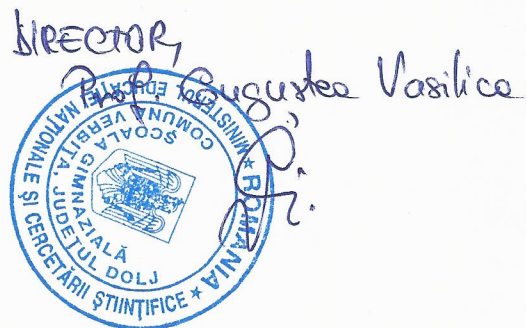 DIRECTOR,
Prof. Vasilica
* ROMANIA *
MINISTERUL EDUCAȚIEI NAȚIONALE ȘI CERCETĂRII ȘTIINȚIFICE
ȘCOALA GIMNAZIALĂ
COMUNA VERBIȚA, JUDEȚUL DOLJ